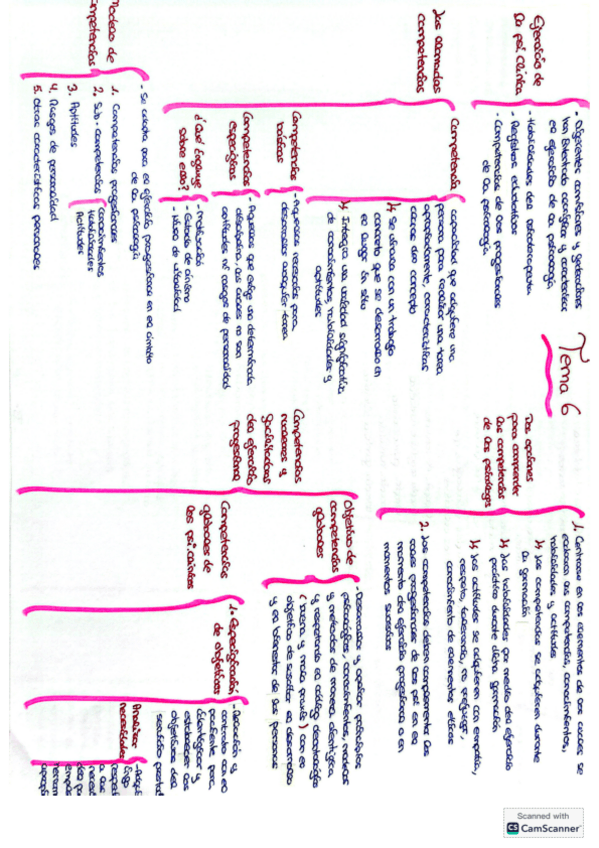 Tema 6
Ejercicio de
la psi. clínica
- Diferentes
van
el ejercicio de la psicología
- Habilidades del psicoterapeuta
- Registros
- Competencias de los profesionales
de la psicología
Las llamadas
competencias
Competencia
capacidad que adquiere una
persona para realizar una tarea
apropiadamente, características
claras del concepto
↳ Se
con un trabajo
concreto que se desarrolla en
un lugar in situ
↳ Integra una variedad significativa
de conocimientos, habilidades y
aptitudes
Competencias
básicas
- Aquellas necesarias para
desarrollar cualquier tarea
Competencias
específicas
- Aquellas que exige una determinada
disciplina, las cuales no son
actitudes ni rasgos de personalidad
¿Qué influye
sobre esto?
- motivación
- Estado de ánimo
- Nivel de vitalidad
Modelo de
competencias
- Se
para el ejercicio profesional en el ámbito
de la psicología
1. Competencias profesionales
2. Sub-competencias
conocimientos
Habilidades
Actitudes
3. Aptitudes
4. Rasgos de personalidad
5. Otras características personales
Dos opciones
para comprender
las competencias
de los psicólogos
1. Centrarse en los elementos de los cuales se
las competencias, conocimientos,
habilidades y actitudes
↳ Las competencias se adquieren durante
la formación
↳ Las habilidades por medio del ejercicio
práctico durante dicha formación
↳ Las actitudes se adquieren con empatía,
respeto, tolerancia, no prejuzgar,
conocimiento de elementos éticos
2. Las competencias deben
las
profesionales de los psi. en el
momento del ejercicio profesional o en
momentos sucesivos
Competencias
nucleares y
facilitadoras
del ejercicio
profesional
Objetivo de
competencias
globales
- Desarrollar y aplicar principios
psicológicos, conocimientos, modelos
y métodos de manera ética/científica
y respetando el código deontológico
(buena y mala praxis) con el
objetivo de facilitar el desarrollo
y el bienestar de las personas
Competencias
globales de
los psi. clínicos
1. Especificación
de objetivos
- Relación y
con el
paciente para
identificar y
establecer los
objetivos del
servicio
Analizar
necesidades
Scanned with
CS CamScanner